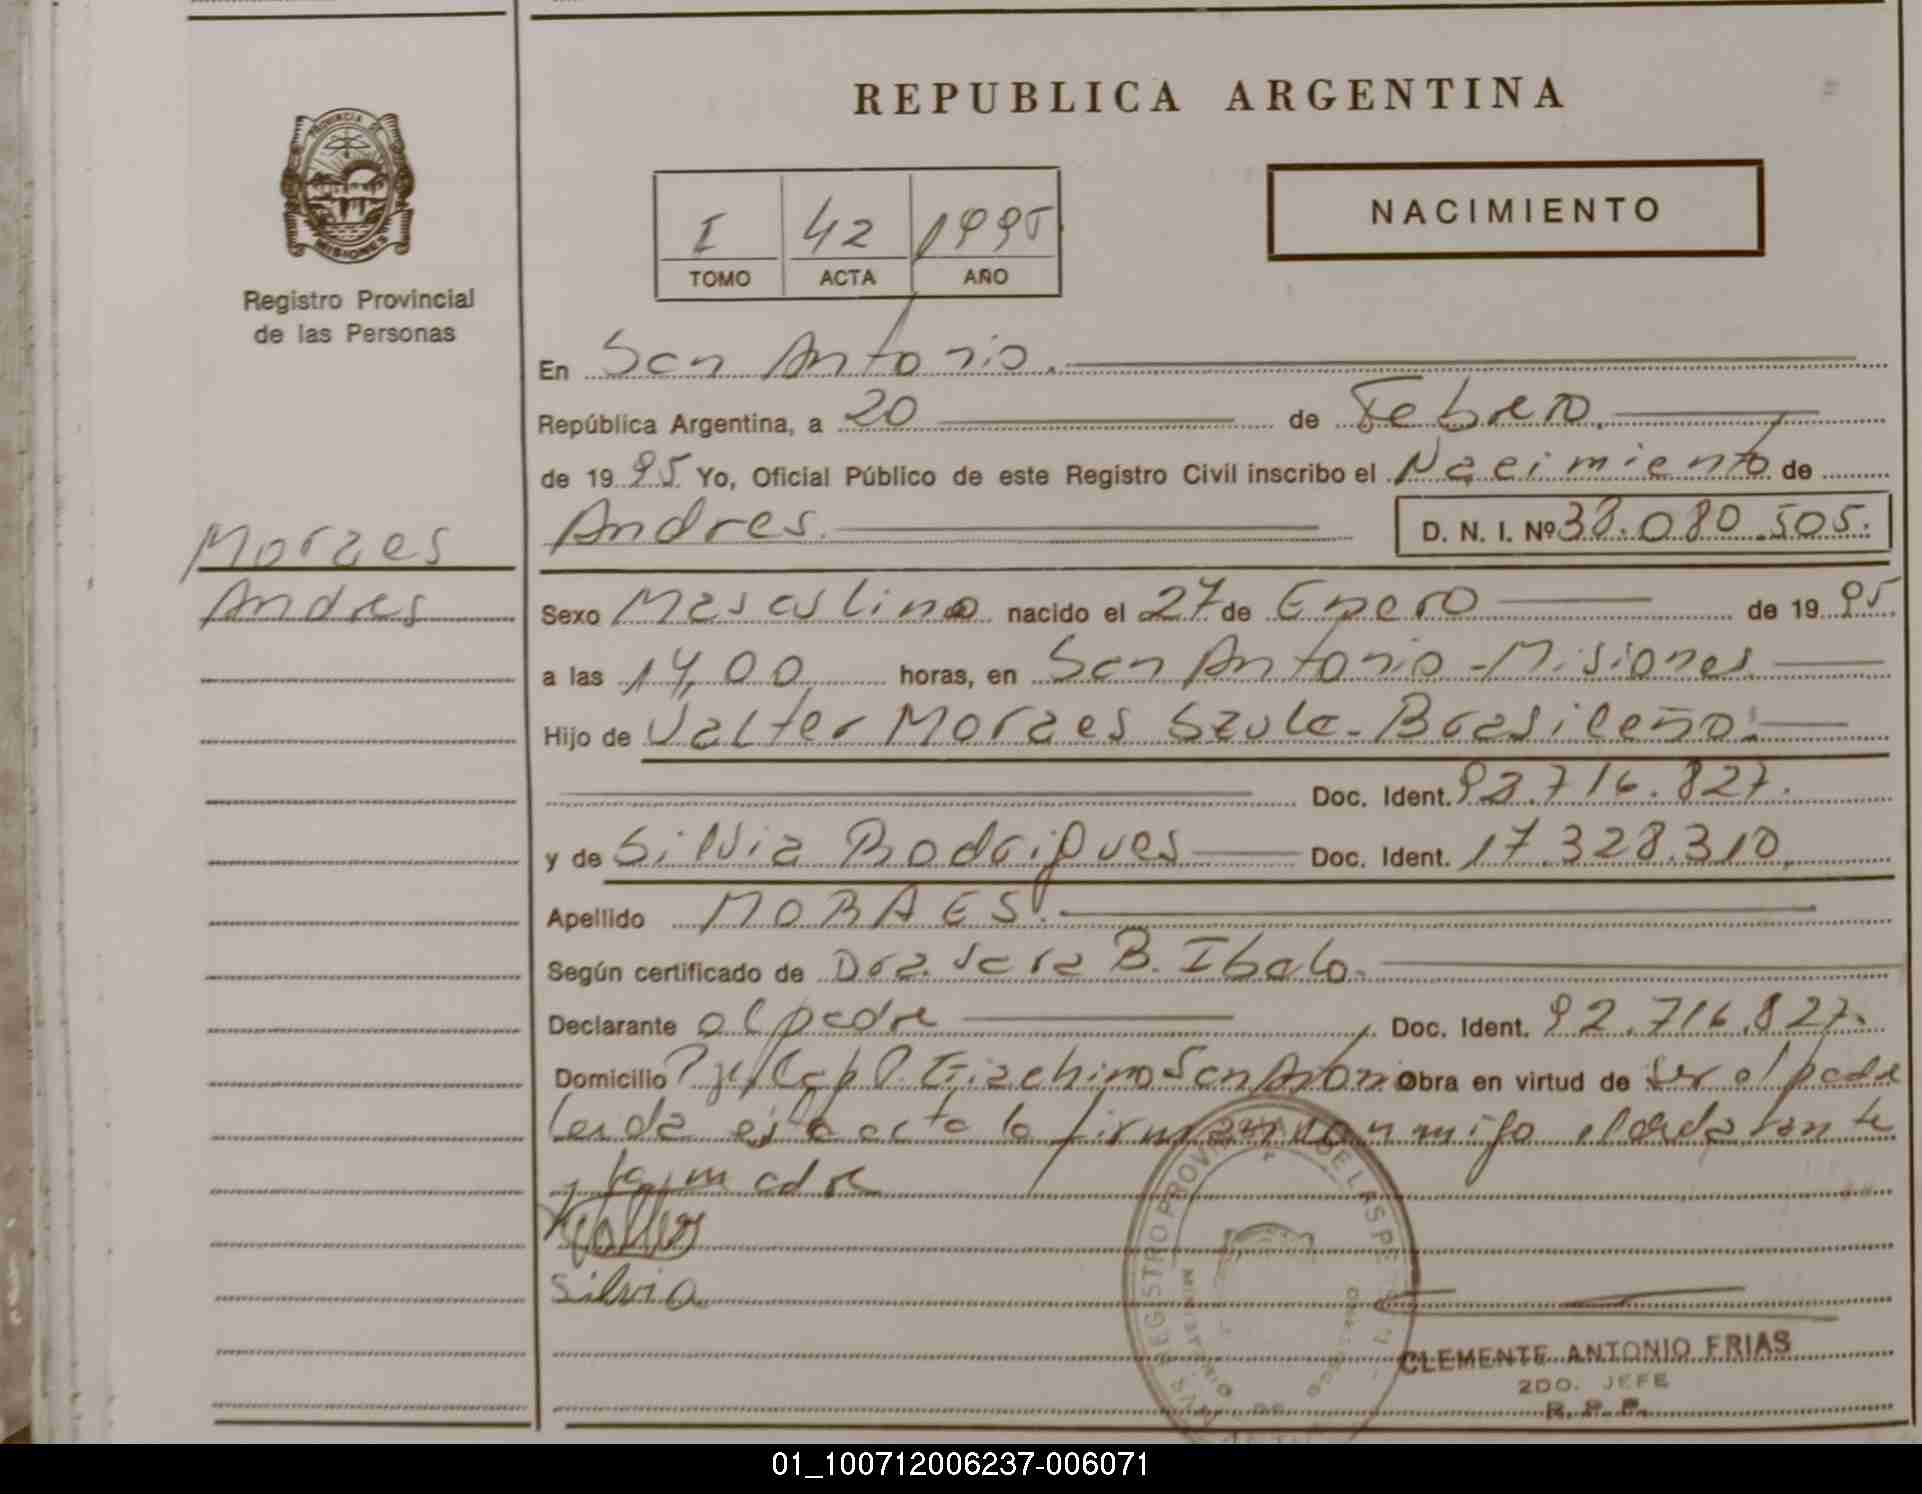 REPUBLICA ARGENTINA
PROVINCIA DE MISIONES
Registro Provincial
de las Personas
I 42 1995
TOMO ACTA AÑO
NACIMIENTO
En San Antonio.
República Argentina, a 20 de Febrero.
de 1995 Yo, Oficial Público de este Registro Civil inscribo el Nacimiento de
Andres. D. N. I. Nº 38.080.505.
Moraes
Andres
Sexo Masculino nacido el 27 de Enero de 1995
a las 14,00 horas, en San Antonio - Misiones
Hijo de Valter Moraes Szulc - Brasileño.
Doc. Ident. 92.716.827.
y de Silvia Rodrigues Doc. Ident. 17.328.310.
Apellido MORAES.
Según certificado de Dra. Sara B. Ibalo.
Declarante el padre Doc. Ident. 92.716.827.
Domicilio Giachino San Antonio Obra en virtud de ser el padre
Leida esta acta la firman conmigo el declarante
y la madre
Silvia
REGISTRO PROVINCIAL DE LAS PE
CLEMENTE ANTONIO FRIAS
2DO. JEFE
R. P. P.
01_100712006237-006071